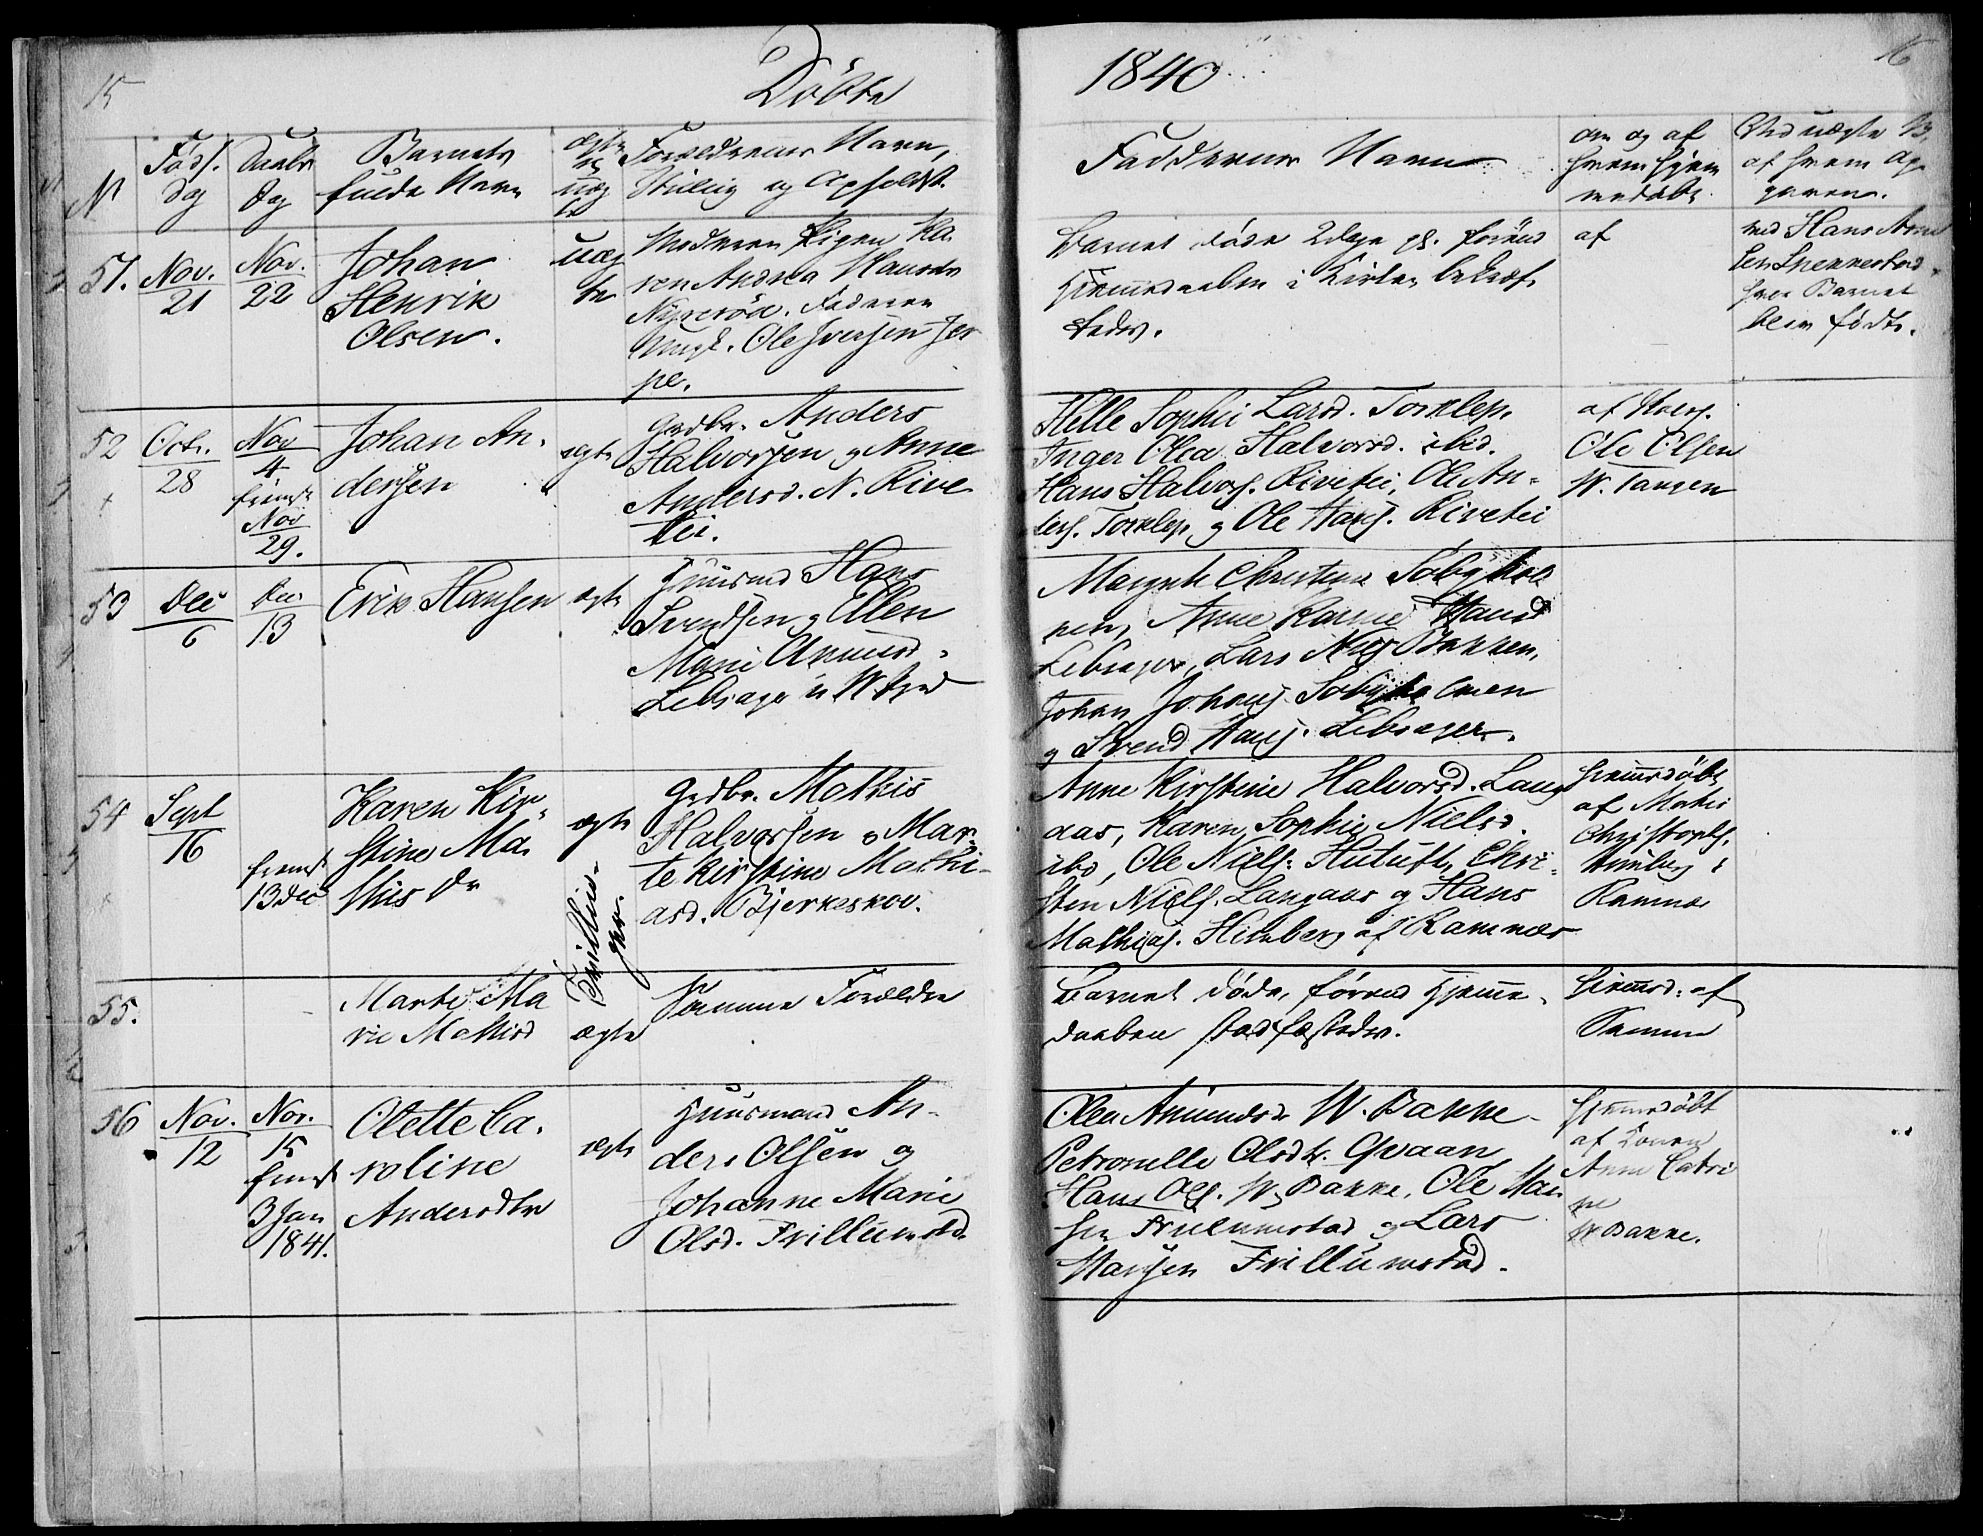 15
Döbte
1840
16
N
Föds.
Dag
Daabs
Dag
Barnets
fulde Navn
ægte
el
uæg
te
Forældrenes Navn,
Stilling og Opholdst.
Faddernes Navn
om og af
hvem hjem
medöbt
Ved uægte B.
af hvem Op-
gaven.
51.
Nov.
21
Nov.
22
Johan
Henrik
Olsen.
uæg
te
Moderen Pigen Ka-
ren Andrea Hansdr
Faderen
Ungk. Ole Iversen Jer
pe.
Barnet döde 2 Dage gl. förend
Hjemmedaaben i Kirken bekræf-
tedes.
af
ved Hans
hvor Barnet
blev födt.
52
Octr.
28
Nov
4
fremst
Nov
29.
Johan An-
dersen
ægte
Grdbr. Anders
Halvorsen og Anne
Andersd. N. Rive
tei.
Helle Sophie Larsd. Torklep,
Inger Olea Halvorsd. ibid.
Hans Halvors. Rivetei, Ole An-
ders. Torklep, og Ole Hans. Rivetei
af
Ole Olsen
N. Tangen
53
Dec
6
Dec
13
Erik Hansen
ægte
Huusmd Hans
Svendsen og Ellen
Marie Amunds.
Lebsager
Margrete Christine Söbyhol
men, Anne Karine Hansd
Lebsager, Lars Bakken,
Johan Johans. Söbyholmen
og Svend Hans. Lebsager.
54
Sept
16
fremst
13 Dec
Karen Kir-
stine Ma-
this Dr
ægte
Tvillin-
ger.
Grdbr. Mathis
Halvorsen og Mar-
te Kirstine Mathi-
asd. Bjerkeskov.
Anne Kirstine Halvorsd. Lang
aas, Karen Sophie Nielsd.
ibd, Ole Niels. Hutuft, Chri-
sten Niels. Langaas og Hans
Mathias. Himberg af Ramnæs
Hjemdöbt
af Mathis
Christophs.
Himberg i
Ramnæs
55.
Marte Ma
rie Mathisd
ægte
Samme Forældre
Barnet döde, förend Hjemme-
daaben stadfæstedes.
Hjemd. af
Samme
56
Nov.
12
Nov.
15
fremst
3 Jan
1841.
Olette Ca-
roline
Andersdtr
ægte
Huusmand An-
ders Olsen og
Johanne Marie
Olsd. Frillumstd
Olea Amundsdr W. Bakke
Petronelle Olsdtr. Qvaan
Hans Ols. W. Bakke, Ole Han
sen Frillumstad og Lars
Hansen Frillumstad.
Hjemmedöbt
af Konen
Anne Catri
ne
W Bakke.